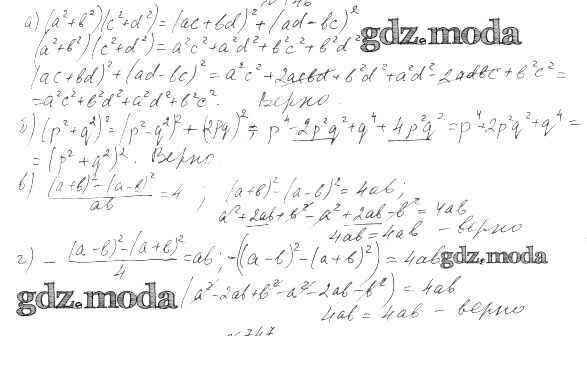 а) (a²+b²)(c²+d²)=(ac+bd)²+(ad-bc)²
(a²+b²)(c²+d²)=a²c²+a²d²+b²c²+b²d²
gdz.moda
(ac+bd)²+(ad-bc)²=a²c²+2acbd+b²d²+a²d²-2adbc+b²c²=
=a²c²+b²d²+a²d²+b²c². Верно.
б) (p²+q²)²=(p²-q²)²+(2pq)²; p⁴-2p²q²+q⁴+4p²q²=p⁴+2p²q²+q⁴=
=(p²+q²)². Верно
в) (a+b)²-(a-b)²/ab=4; (a+b)²-(a-b)²=4ab;
a²+2ab+b²-a²+2ab-b²=4ab
4ab=4ab - верно
г) -(a-b)²-(a+b)²/4=ab; -((a-b)²-(a+b)²)=4ab
gdz.moda
gdz.moda
(a²-2ab+b²-a²-2ab-b²)=4ab
4ab=4ab - верно
747